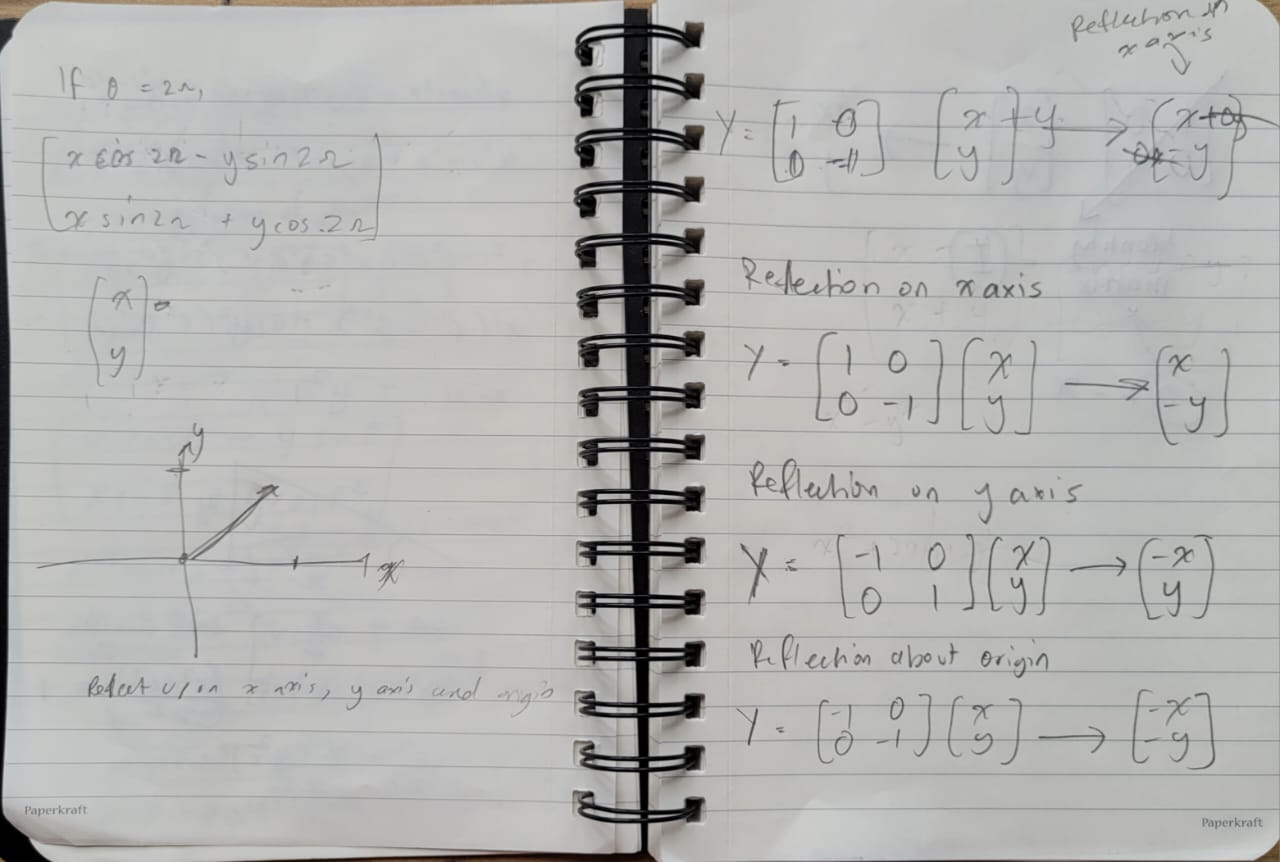 If θ = 2π,
[x cos 2π - y sin 2π
x sin 2π + y cos 2π]
[x
y] =
y
x
Reflect upon x axis, y axis and origin
Paperkraft
Reflection in
x axis
Y = [1 0 [x y → [x+0y
0 -1] y] -y]
Reflection on x axis
Y = [1 0 [x → [x
0 -1] y] -y]
Reflection on y axis
Y = [-1 0 [x → [-x
0 1] y] y]
Reflection about origin
Y = [-1 0 [x → [-x
0 -1] y] -y]
Paperkraft